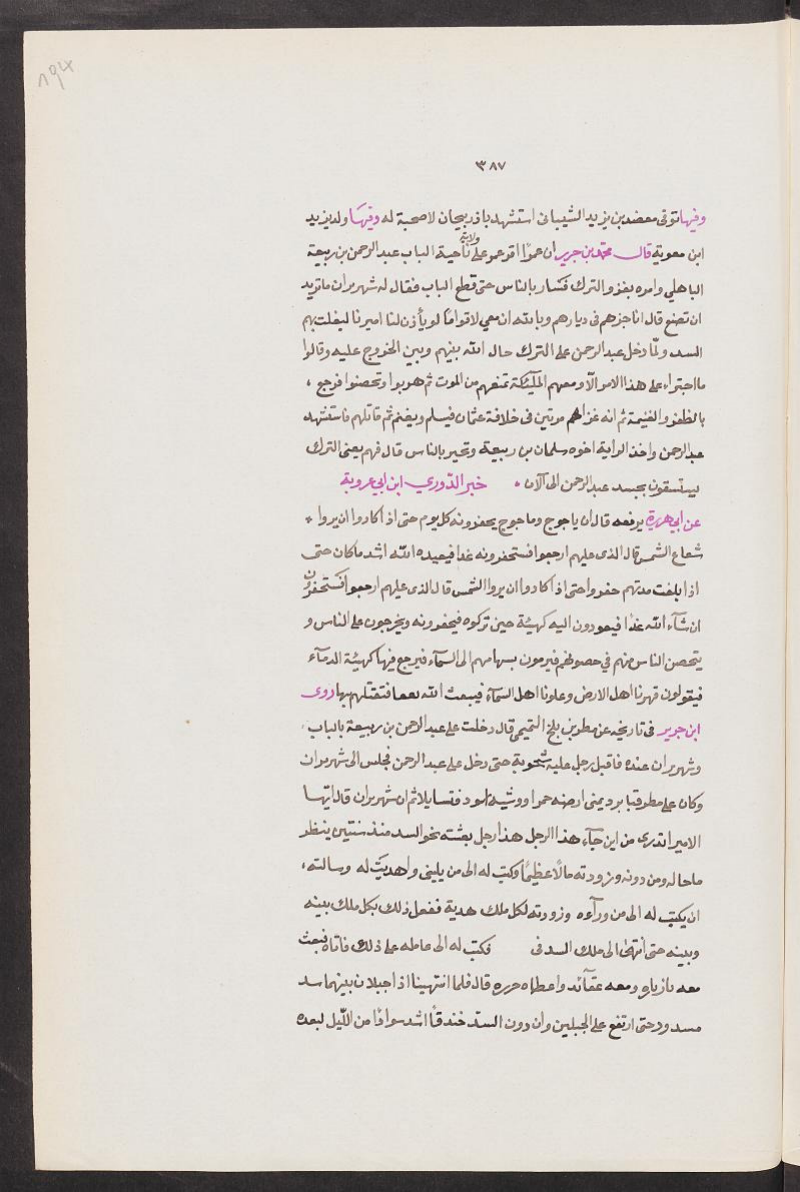 ١٩٤
٣٨٧
وفيها توفى معضد بن يزيد الشيبانى استشهد باذربيجان لا صحبة له وفيها ولد يزيد
ابن معوية قال محمد بن جرير ان عمرًا اقر عمر على ولاية ناحية الباب عبد الرحمن بن ربيعة
الباهلي وامره بغزو الترك فسار بالناس حتى قطع الباب فقال له شهربران ما تريد
ان تصنع قال اناجزهم فى ديارهم وبالله ان معي لاقوامًا لو يأذن لنا اميرنا لبلغت بهم
السد ولمّا دخل عبد الرحمن على الترك حال الله بينهم وبين الخروج عليه وقالوا
ما اجتراء على هذا الامر الّا ومعهم المليٓكة تمنعهم من الموت ثم هربوا وتحصنوا فرجع
بالظفر والغنيمة ثم انه غزاهم مرتين فى خلافة عثمان فيسلم ويغنم ثم قاتلهم فاستشهد
عبد الرحمن واخذ الراية اخوه سلمان بن ربيعة وتحير بالناس قال فهم يعنى الترك
ليستسقون بجسد عبد الرحمن الى الآن خبر الدّوري ابن ابي عروبة
عن ابي هريرة يرفعه قال ان ياجوج وماجوج يحفرونه كل يوم حتى اذا كادوا ان يروا
شعاع الشمس قال الذى عليهم ارجعوا فستحفرونه غدا فيعيده الله اشد ما كان حتى
اذا بلغت مدتهم حفروا حتى اذا كادوا ان يروا الشمس قال الذى عليهم ارجعوا فستحفرون
ان شآء الله غدًا فيعودون اليه كهيئة حين تركوه فيحفرونه ويخرجون على الناس و
يتحصن الناس منهم في حصونهم فيرمون بسهامهم الى السمآء فيرجع فيها كهيئة الدمآء
فيقولون قهرنا اهل الارض وعلونا اهل السمآء فيبعث الله نغفا فتقتلهم بها روى
ابن جرير فى تاريخه عن مطر بن بلخ التميمي قال دخلت على عبد الرحمن بن ربيعة بالباب
وشهربران عنده فاقبل رجل عليه شحوبة حتى دخل على عبد الرحمن فجلس الى شهربران
وكان على مطر قبا برد يمنى ارضه حمرا ووشيه اسود فتسايلا ثم ان شهربران قال ايّها
الامير اتدرى من اين جآء هذا الرجل هذا رجل بعثته نحو السد منذ سنتين ينظر
ما حاله ومن دونه وزودته مالًا عظيمًا وكتب له الى من يلينى واهديت له وسالته
ان يكتب له الى من ورآءه وزودته لكل ملك هدية ففعل ذلك بكل ملك بينه
وبينه حتى انتهى الى ملك السد فى فكتب له الى عامله على ذلك فاتاه فبعث
معه بازياره ومعه عقابه واعطاه حريره قال فلما انتهينا اذا جبلان بينهما سد
مسدود حتى ارتفع على الجبلين وان دون السدّ خندقًا اشد سوادًا من اللّيل لبعده